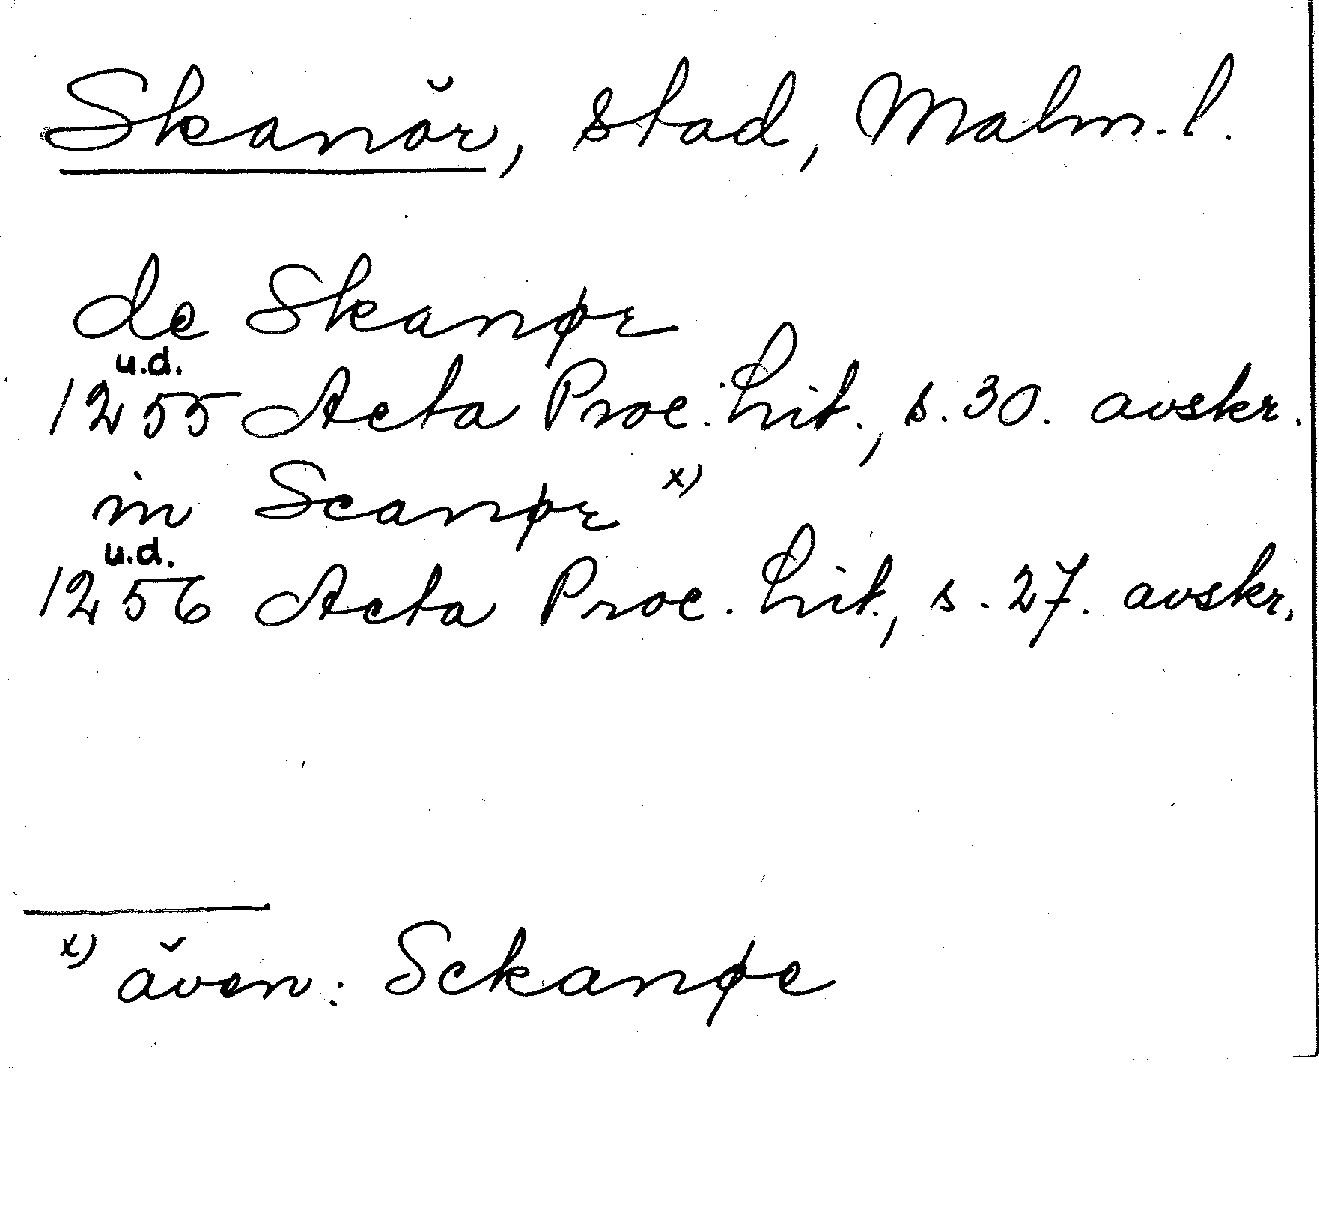 Skanör, stad, Malm. l.
de Skanør
u.d.
1255 Acta Proc. Lit., s. 30. avskr.
in Scanør x)
u.d.
1256 Acta Proc. Lit., s. 27. avskr.
x) även: Sckanøe